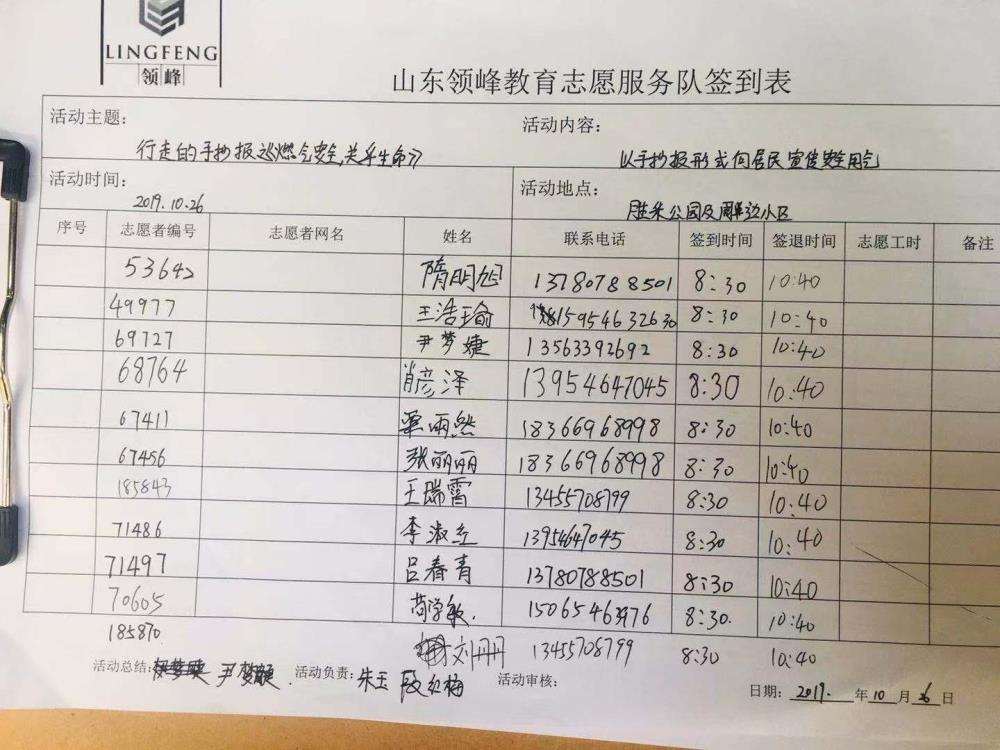 LINGFENG
领峰
山东领峰教育志愿服务队签到表
活动主题:
行走的手抄报《燃气安全,关乎生命》
活动内容:
以手抄报形式向居民宣传安全用气
活动时间:
2019.10.26
活动地点:
胜采公园及周边小区
序号 志愿者编号 志愿者网名 姓名 联系电话 签到时间 签退时间 志愿工时 备注
53642 隋明旭 13780788501 8:30 10:40
49977 王浩瑜 15954632630 8:30 10:40
69727 尹梦婕 13563392692 8:30 10:40
68764 肖彦泽 13954647045 8:30 10:40
67411 雨然 18366968998 8:30 10:40
67456 张丽丽 18366968998 8:30 10:40
185843 王瑞霄 13455708799 8:30 10:40
71486 李淑红 13954647045 8:30 10:40
71497 吕春青 13780788501 8:30 10:40
70605 苟学敏. 15065463976 8:30. 10:40
185870 刘丹丹 13455708799 8:30 10:40
活动总结: 尹梦婕. 活动负责: 朱玉 段红梅 活动审核:
日期: 2019. 年 10 月 26 日